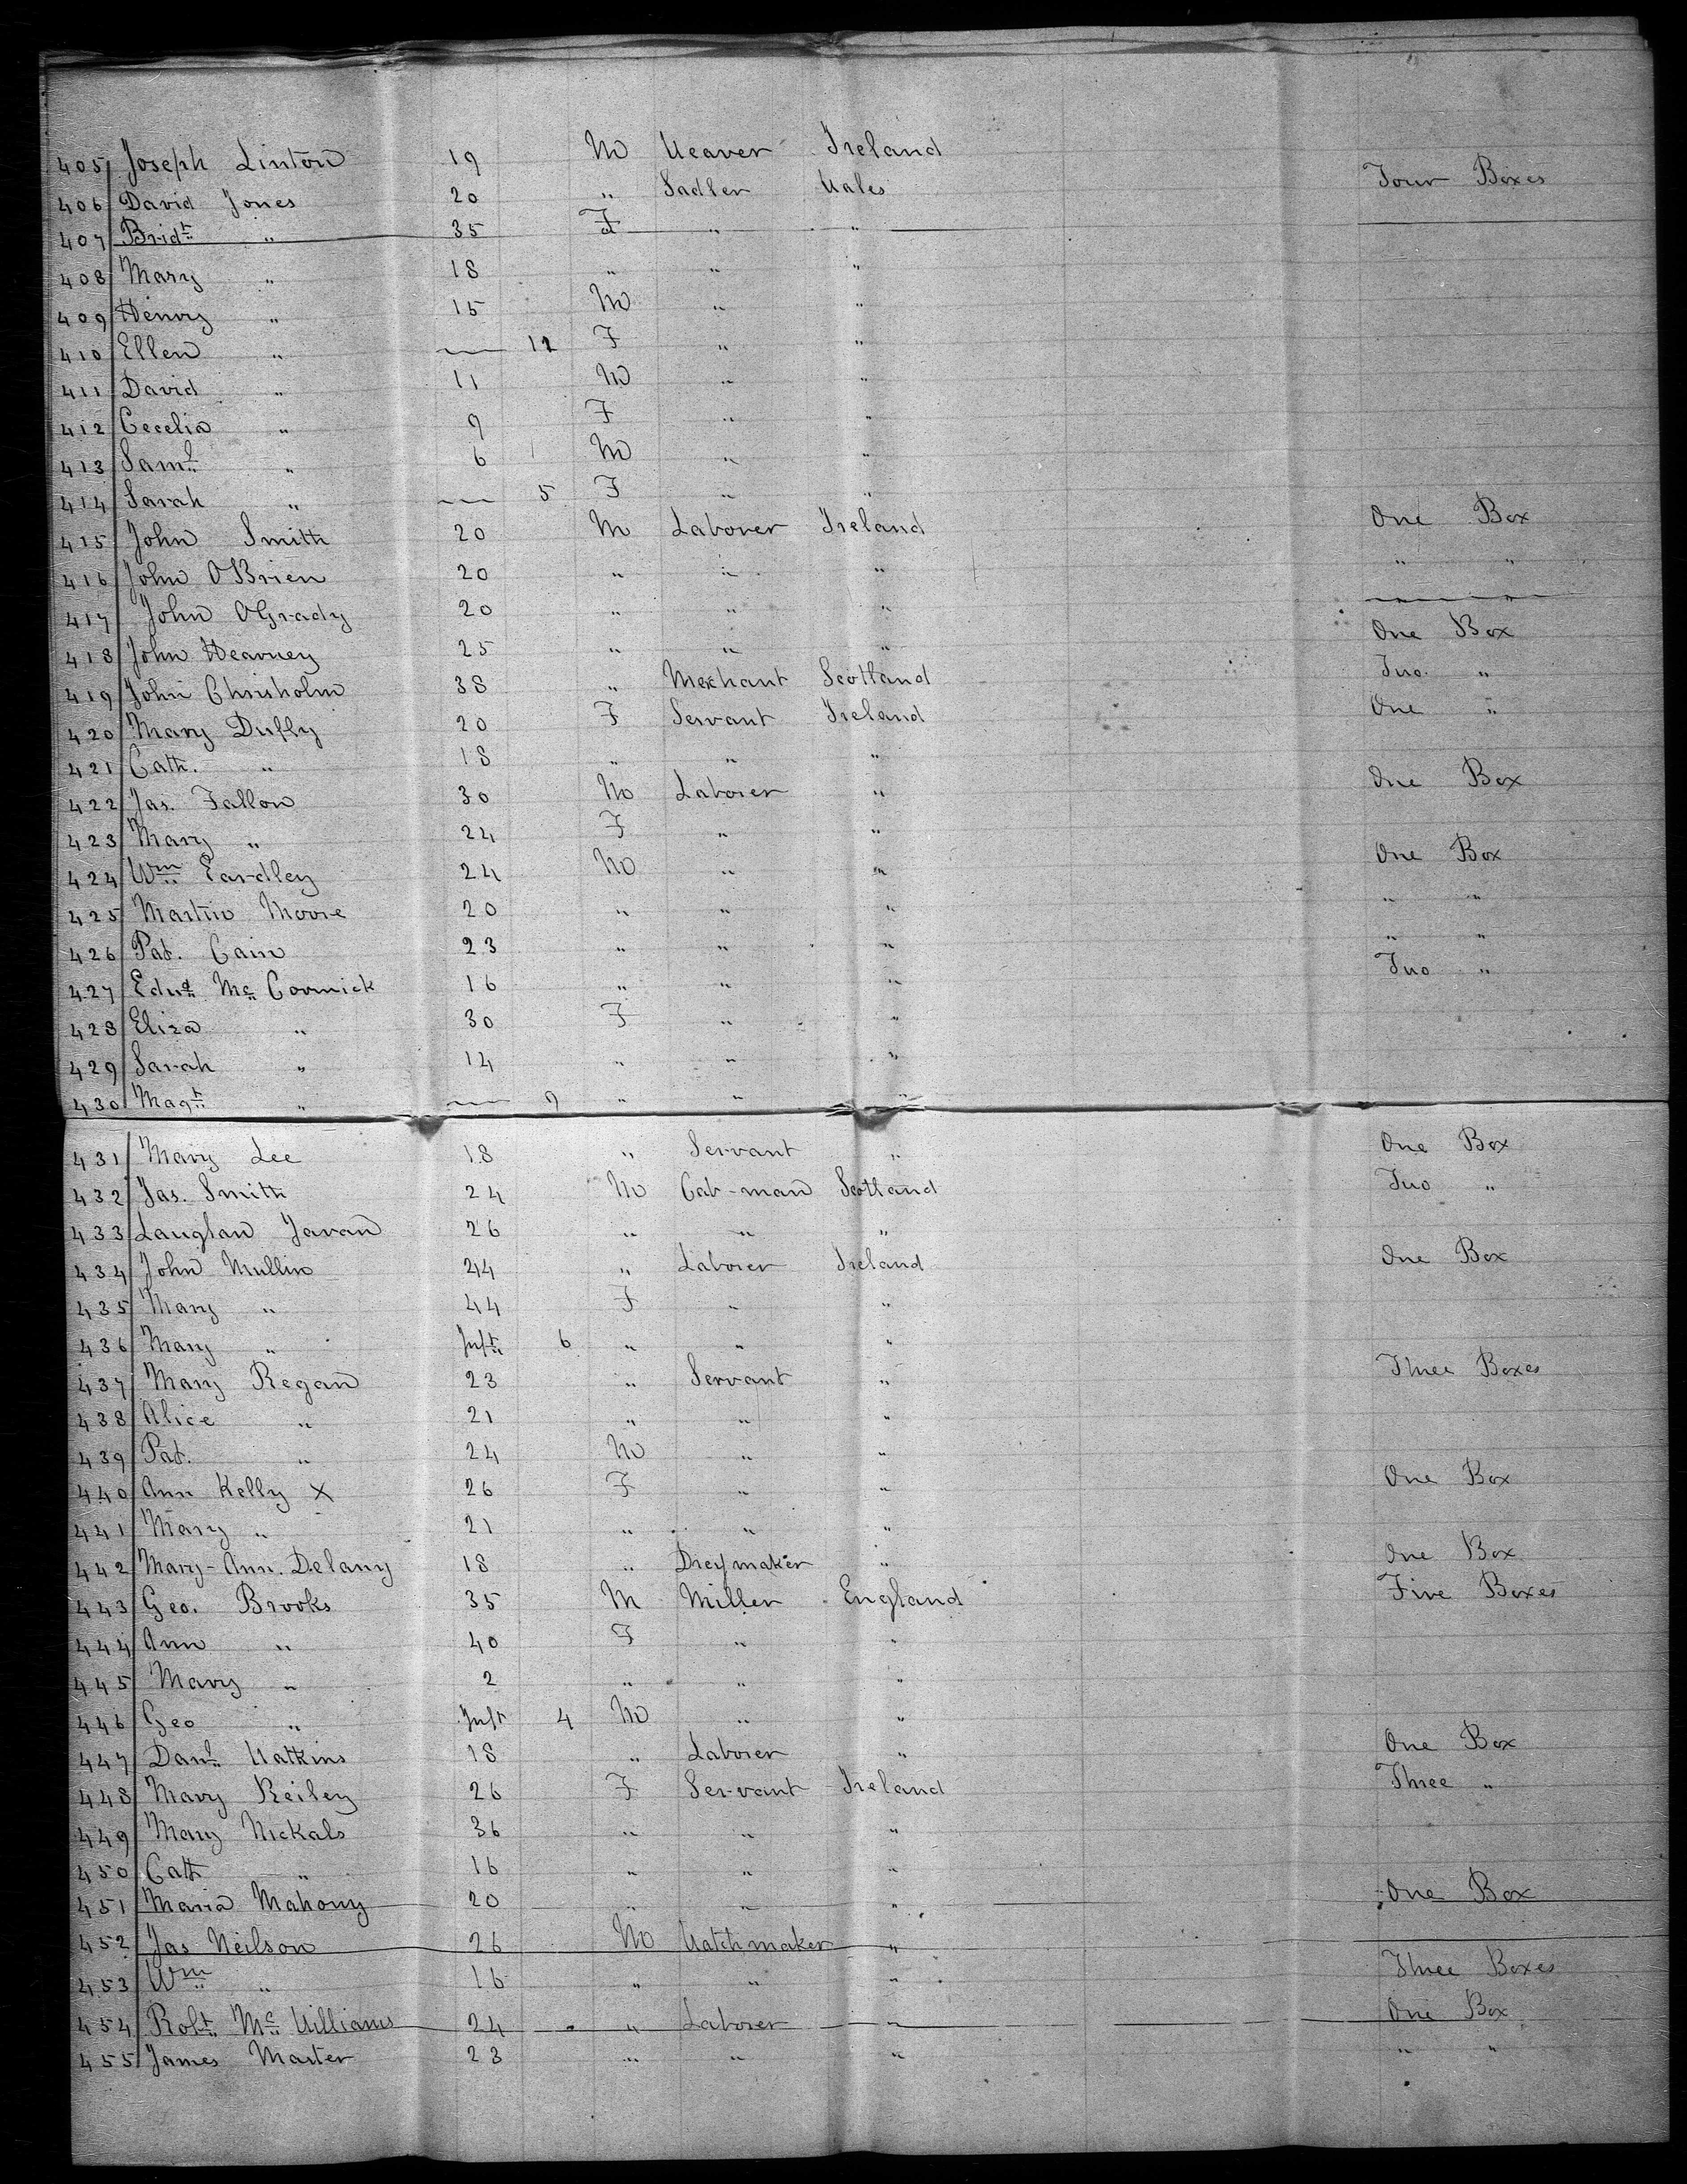 405 Joseph Linton 19 M Weaver Ireland
406 David Jones 20 " Sadler Wales Four Boxes
407 Bridt " 35 F " "
408 Mary " 18 " " "
409 Henry " 15 M " "
410 Ellen " — 11 F " "
411 David " 11 M " "
412 Cecelia " 9 F " "
413 Saml " 6 M " "
414 Sarah " — 5 F " "
415 John Smith 20 M Laborer Ireland One Box
416 John OBrien 20 " " " " "
417 John OGrady 20 " " "
418 John Hearney 25 " " " One Box
419 John Chrisholm 38 " Merchant Scotland Two "
420 Mary Duffy 20 F Servant Ireland One "
421 Cath. " 18 " " "
422 Jas. Fallon 30 M Laborer " One Box
423 Mary " 24 F " "
424 Wm Eardley 24 M " " One Box
425 Martin Moore 20 " " " " "
426 Pat. Cain 23 " " " " "
427 Edwd Mc Cormick 16 " " " Two "
428 Eliza " 30 F " "
429 Sarah " 14 " " "
430 Magt " — 9 " " "
431 Mary Lee 18 " Servant " One Box
432 Jas. Smith 24 M Cab-man Scotland Two "
433 Lauglan Javan 26 " " "
434 John Mullin 44 " Laborer Ireland One Box
435 Mary " 44 F " "
436 Mary " Inft 6 " " "
437 Mary Regan 23 " Servant " Three Boxes
438 Alice " 21 " " "
439 Pat. " 24 M " "
440 Ann Kelly X 26 F " " One Box
441 Mary " 21 " " "
442 Mary-Ann. Delany 18 " Dreymaker " One Box
443 Geo. Brooks 35 M Miller England Five Boxes
444 Ann " 40 F " "
445 Mary " 2 " " "
446 Geo " Inft 4 M " "
447 Danl Watkins 18 " Laborer " One Box
448 Mary Reiley 26 F Servant Ireland Three "
449 Mary Nickals 36 " " "
450 Cath " 16 " " "
451 Maria Mahony 20 " " " One Box
452 Jas Neilson 26 M Watchmaker "
453 Wm " 16 " " " Three Boxes
454 Robt Mc Williams 24 " Laborer " One Box
455 James Master 23 " " " " "